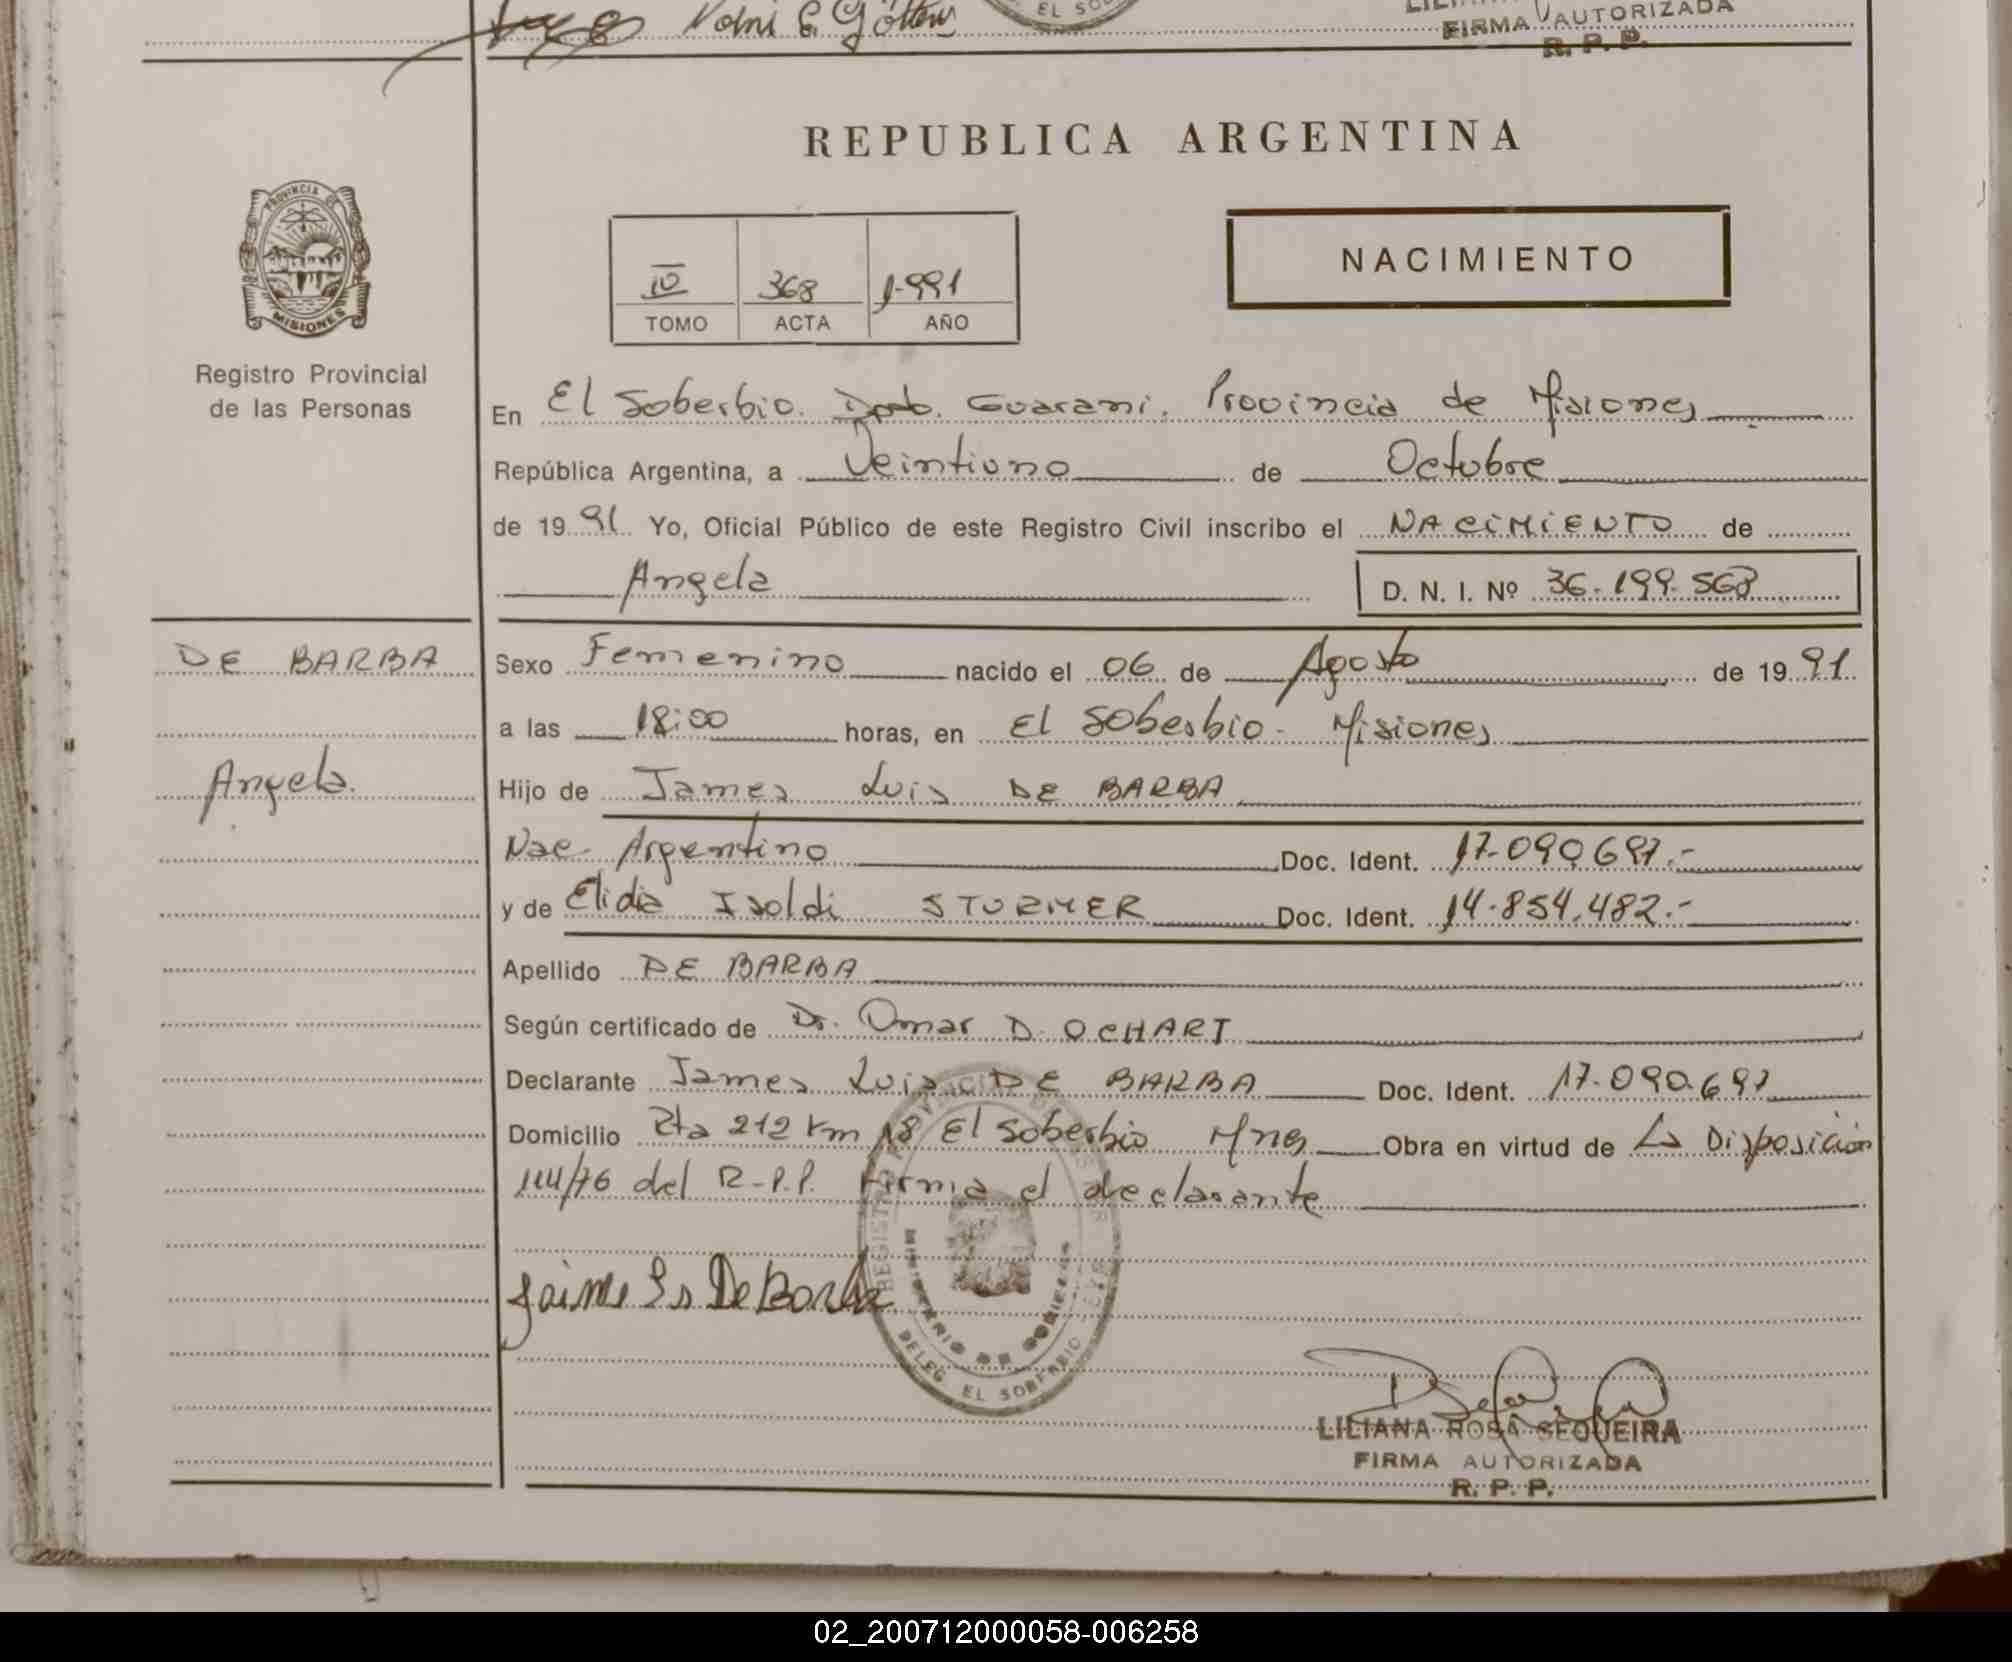 Nolni E. Göttens
EL SO
FIRMA AUTORIZADA
R. P. P.
REPUBLICA ARGENTINA
PROVINCIA DE
MISIONES
Registro Provincial
de las Personas
IV 368 1.991
TOMO ACTA AÑO
NACIMIENTO
En El Soberbio. Dpto. Guarani. Provincia de Misiones
República Argentina, a Veintiuno de Octubre
de 1991 Yo, Oficial Público de este Registro Civil inscribo el NACIMIENTO de
Angela D. N. I. Nº 36.199.563
DE BARBA
Angela.
Sexo Femenino nacido el 06 de Agosto de 1991
a las 18:00 horas, en El Soberbio - Misiones
Hijo de James Luis DE BARBA
Nac. Argentino Doc. Ident. 17.090.697.-
y de Elidia Isoldi STURMER Doc. Ident. 14.854.482.-
Apellido DE BARBA
Según certificado de Dr. Omar D. OCHART
Declarante James Luis DE BARBA Doc. Ident. 17.090.697
Domicilio Rta 212 Km 18 El Soberbio Mnes Obra en virtud de La Disposición
144/76 del R.P.P. Firma el declarante
REGISTRO PROVINCIAL DE LAS PER
MINISTERIO DE GOBIERNO
DELEG. EL SOBERBIO
Jaime Ls De Barba
LILIANA ROSA SEQUEIRA
FIRMA AUTORIZADA
R. P. P.
02_200712000058-006258